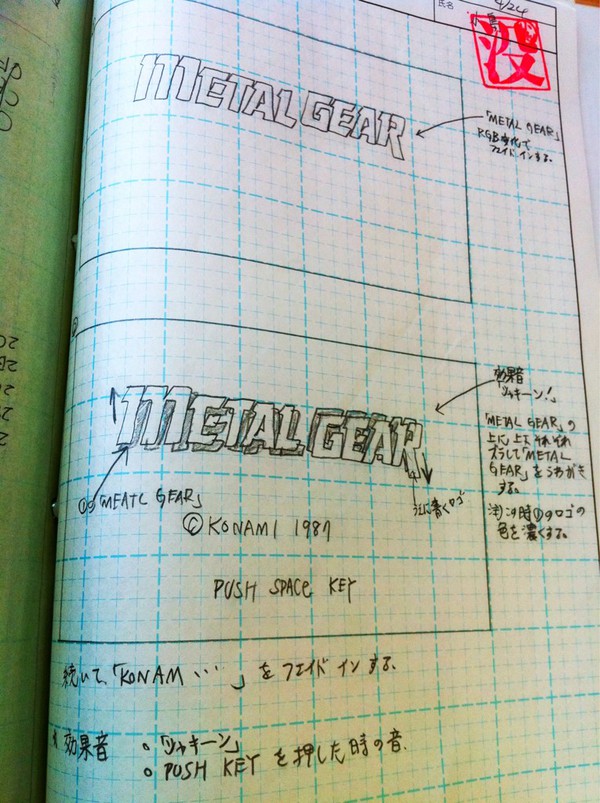 4/24
氏名 小島
没
METAL GEAR
「METAL GEAR」
RGB変化で
フェイドインする。
METAL GEAR
効果音
「ジャキーン!」
「METAL GEAR」の
上に上下それぞれ
ズラして「METAL
GEAR」をうわがき
する。
注)この時①のロゴの
色を濃くする。
①の「MEATL GEAR」
次に書くロゴ
© KONAMI 1987
PUSH SPACE KEY
続いて、「KONAM・・・」をフェイドインする。
効果音 ○「ジャキーン」
○ PUSH KEY を押した時の音。